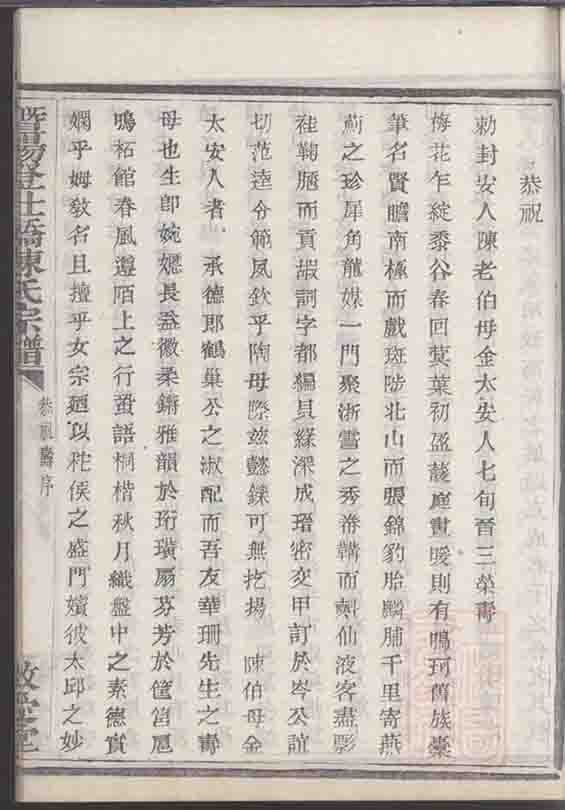 恭祝
勅封安人陳老伯母金太安人七旬晉三榮壽
梅花乍綻黍谷春回蓂葉初盈蔆庭晝暖則有鳴珂舊族橐
筆名賢瞻南極而戲斑陟北山而張錦豹胎麟脯千里寄燕
薊之珍犀角龍媒一門聚浙雪之秀滌鞲而斟仙液客盡影
袿鞠䠆而貢嘏詞字都編貝緣深成瑨密交甲訂於岑公誼
切范逵令範風欽乎陶母際茲懿鑠可無挖揚 陳伯母金
太安人者 承德郎鶴巢公之淑配而吾友華珊先生之壽
母也生卽婉嫕長益徽柔鏘雅韻於珩璜扇芬芳於筐筥鳲
鳴柘館春風遵陌上之行蛩語桐楷秋月織盤中之素德實
嫻乎姆敎名且擅乎女宗廼以秺侯之盛門嬪彼太邱之妙
暨陽登仕橋陳氏宗譜
恭祝壽序
敦
堂